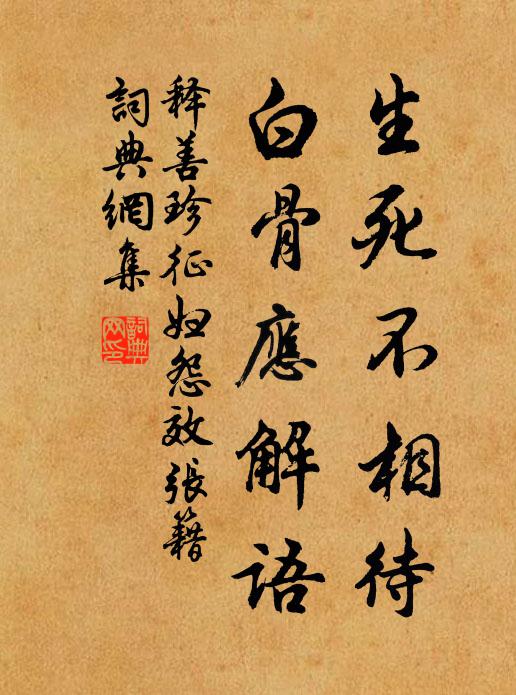 生死不相待
白骨應解語
释善珍征妇怨效張籍
詞典網集
詞典网印